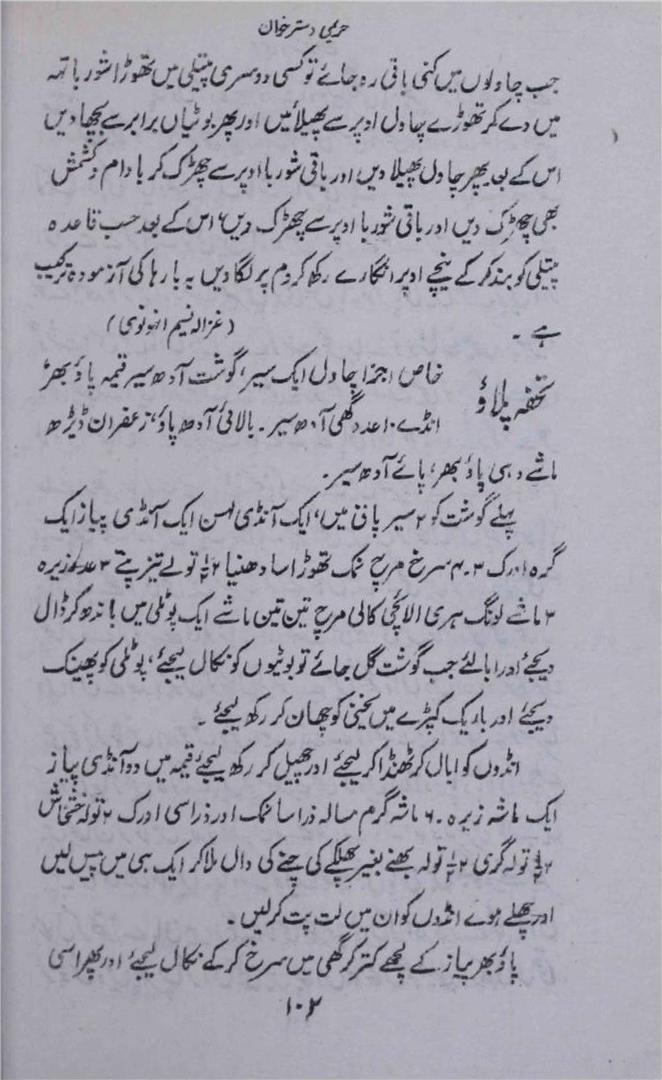 حریمی دسترخوان
جب چاولوں میں کنی باقی رہ جائے تو کسی دوسری پتیلی میں تھوڑا شوربا تہہ
میں دے کر تھوڑے چاول اوپر سے پھیلائیں اور پھر بوٹیاں برابر سے بچھا دیں
اس کے بعد پھر چاول پھیلا دیں اور باقی شوربا اوپر سے چھڑک کر بادام و کشمش
بھی چھڑک دیں اور باقی شوربا اوپر سے چھڑک دیں، اس کے بعد حسب قاعدہ
پتیلی کو بند کر کے نیچے اوپر انگارے رکھ کر دم پر لگا دیں یہ بارہا کی آزمودہ ترکیب
ہے۔ (غزالہ نسیم انہونوی)
تحفہ پلاؤ
خاص اجزا چاول ایک سیر، گوشت آدھ سیر قیمہ پاؤ بھر
انڈے ۱۰ عدد گھی آدھ سیر۔ بالائی آدھ پاؤ، زعفران ڈیڑھ
ماشے دہی پاؤ بھر، پائے آدھ سیر۔
پہلے گوشت کو ۲ سیر پانی میں، ایک آنڈی لہسن ایک آنڈی پیاز ایک
گرہ ادرک ۳۔۴ سرخ مرچ نمک تھوڑا سا دھنیا ۲½ تولے تیز پتے ۳ عدد زیرہ
۳ ماشے لونگ ہری الائچی کالی مرچ تین تین ماشے ایک پوٹلی میں باندھ کر ڈال
دیجئے اور ابالئے جب گوشت گل جائے تو بوٹیوں کو نکال لیجئے، پوٹلی کو پھینک
دیجئے اور باریک کپڑے میں یخنی کو چھان کر رکھ لیجئے۔
انڈوں کو ابال کر ٹھنڈا کر لیجئے اور چھیل کر رکھ لیجئے قیمہ میں دو آنڈی پیاز
ایک ماشہ زیرہ۔ ۶ ماشہ گرم مسالہ ذرا سا نمک اور ذرا سی ادرک ۲ تولہ خشخاش
۲½ تولہ گری ۲½ تولہ بھنے بغیر چھلکے کی چنے کی دال ملا کر ایک ہی میں پیس لیں
اور چھلے ہوے انڈوں کو ان میں لت پت کر لیں۔
پاؤ بھر پیاز کے لچھے کتر کر گھی میں سرخ کر کے نکال لیجئے اور پھر اسی
۱۰۲